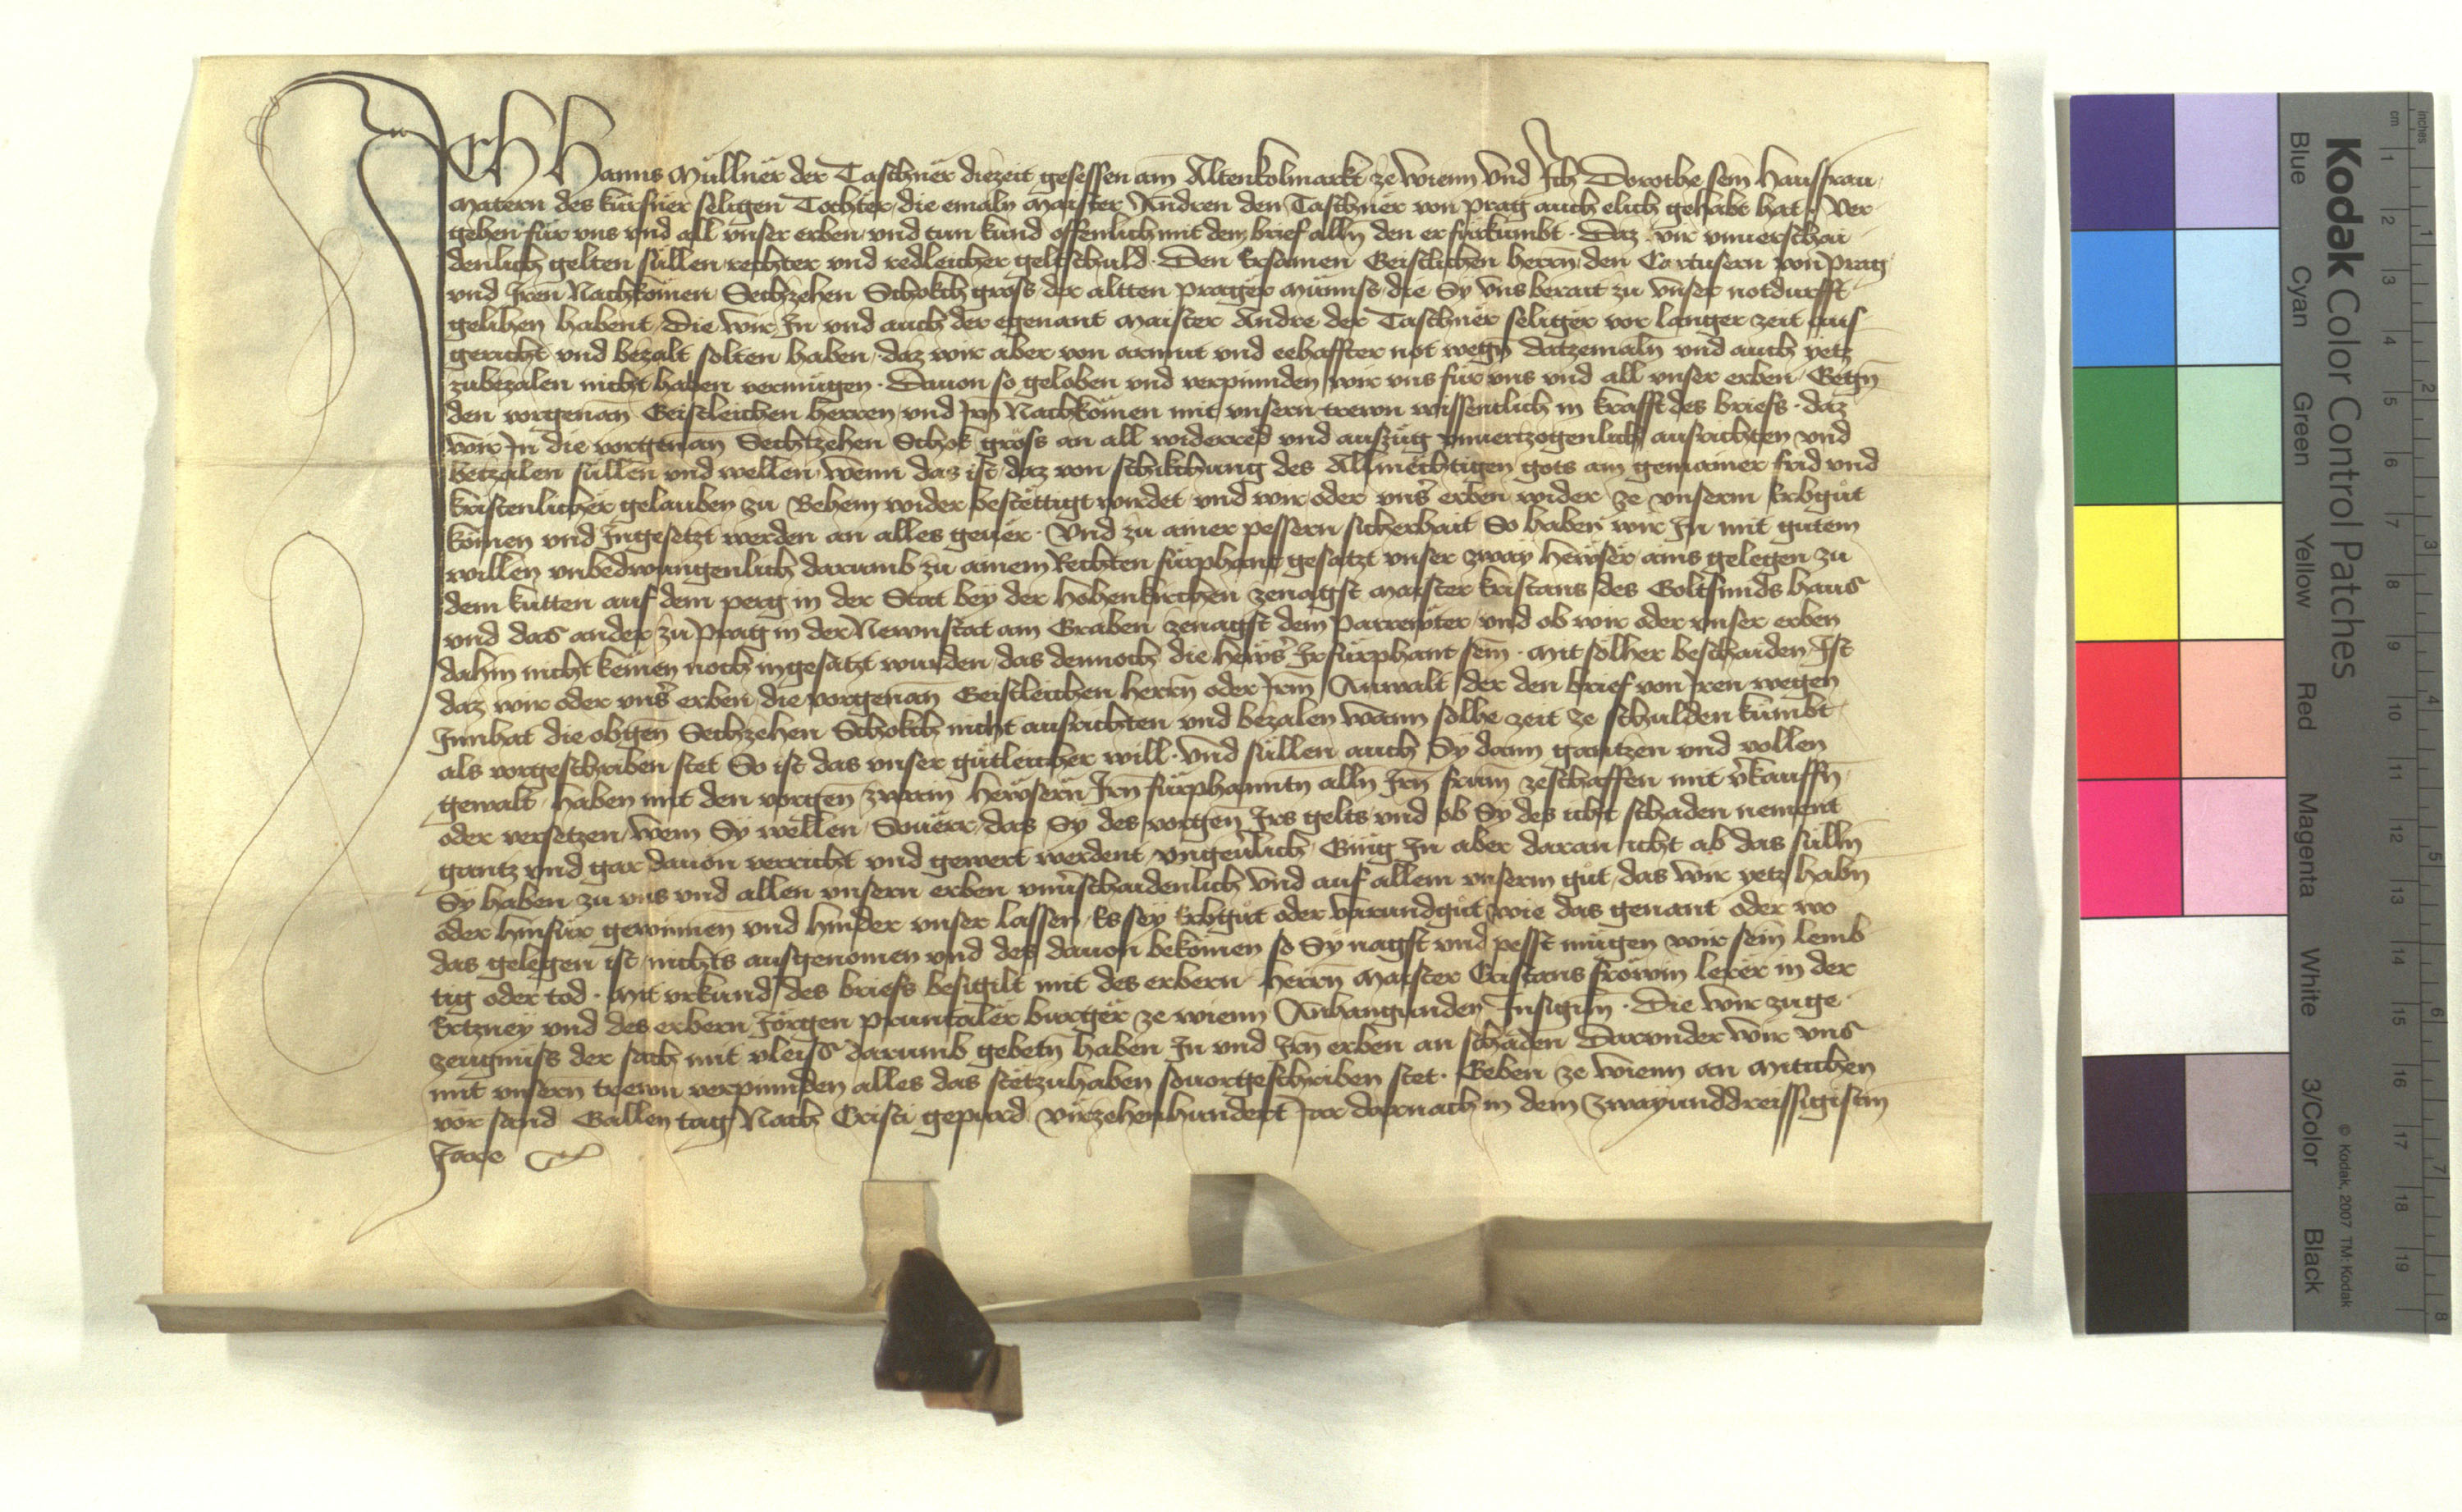 ICH Hanns Müllner der Taschner diezeit gesessen am Altenkolmarkt ze Wienn Vnd Ich Dorothe sein Hausfrau
Matern des kürsner seligen Tochter die emaln Maister Andren den Taschner von Prag auch elich gehabt hat Ver
gehen für vns vnd all vnser erben vnd tun kund offenlich mit dem brief alln den er fürkumbt · Daz wir vnuerschai
denlich gelten süllen rechter vnd redleicher geltschuld · Den Ersamen Geistlichen herrn den Cartusern von Prag
vnd Iren Nachkömen Sechzehen Schokch gross der altten Prager münss die Sy vns berait zu vnser notdurfft
gelihen habent Die wir In vnd auch der egenant Maister Andre der Taschner seliger vor langer zeit aus
gericht vnd bezalt solten haben daz wir aber von armut vnd eehaffter not wegn datzemaln vnd auch yetz
zubezalen nicht haben vermügen · Dauon so geloben vnd verpinnden wir vns für vns vnd all vnser erben Gegn
den vorgenan Geistleichen herren vnd Irn Nachkömen mit vnsern trewn wissentlich in krafft des briefs · daz
wir In die vorgenan Sechtzehen Schok gross an all widerred vnd auszüg vnuertzogenlich ausrichten vnd
betzalen süllen vnd wellen wenn das ist daz von schikchung des Allmechtigen gots am gemainer frid vnd
kristenlicher gelauben zu Behem wider bestettigt wirdet vnd wir oder vnser erben wider ze vnserm Erbgut
kömen vnd Ingesetzt werden an alles geuer · Vnd zu ainer pessern sicherhait So haben wir In mit gutem
willen vnbedwungenlich darumb zu ainem Rechten fürphant gesatzt vnser zway Hewser ains gelegen zu
dem kutten auf dem perg in der Stat bey der Hohenkirchen zenagst Maister kristans des Goltsmids haus
vnd das ander zu Prag in der Newnstat am Graben zenagst dem vnd ob wir oder vnser erben
dahin nicht kemen noch ingesatzt wurden das dennoch die Hewser Ir fürphant sein · Mit sölher beschaiden Ist
daz wir oder vnser erben die vorgenan Geistleichen Herrn oder Irm Anwalt der den brief von Iren wegen
Innhat die obgen Sechzehen Schokch nicht ausrichten vnd bezalen wann solhe zeit ze schulden kumbt
als vorgeschriben stet So ist das vnser gütleicher will · Vnd süllen auch Sy dann gantzen vnd vollen
gewalt haben mit den vorgen zwain Hewsern Irn fürphanntn alln Irn frum zeschaffen mit verkauffn
oder versetzen wem Sy wellen Souerr das Sy des vorgen Irs gelts vnd ob Sy des icht schaden nement
gantz vnd gar dauon verricht vnd gewert werdent vngeuerlich Gieng In aber daran icht ab das sülln
Sy haben zu vns vnd allen vnsern erben vnuerschaidenlich Vnd auf allem vnserm gut das wir yetz habn
oder hinfür gewinnen vnd hinder vnser lassen Es sey Erbgut oder varundgut wie das genant oder wo
das gelegen ist nichts ausgenomen vnd des dauon bekomen so Sy nagst vnd pesst mügen wir sein lemb
tig oder tod · Mit vrkund des briefs besigilt mit des erbern Herrn Maister Cristans fröwin lerer in der
Ertzney vnd des erbern Jörgen Pruntaler burger ze wienn Anhangunden Insigiln · Die wir zu ge
zeugniss der sach mit vleiss darumb gebetn haben In vnd Irn erben an schaden Darunder wir vns
mit vnsern trewn verpinnden alles das stet zuhaben so vorgeschriben stet · Geben ze wienn an Mitichen
vor sand Gallen tag Nach Cristi gepurd virzehenhundert Jar darnach in dem Zwayunddreissigistm
Jare
Kodak Color Control Patches
Blue Cyan Green Yellow Red Magenta White 3/Color Black
© Kodak, 2007 TM: Kodak
cm 1 2 3 4 5 6 7 8 9 10 11 12 13 14 15 16 17 18 19
inches 1 2 3 4 5 6 7 8